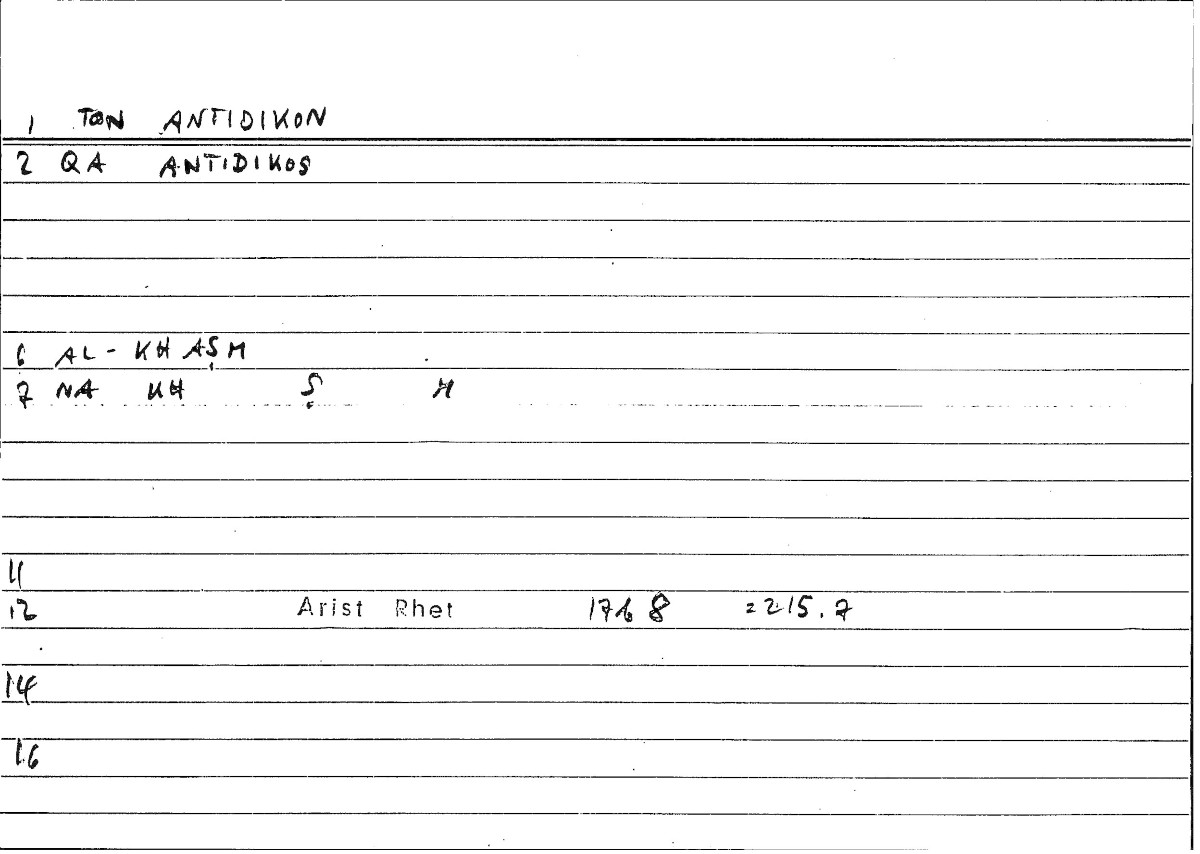 1 TON ANTIDIKON
2 QA ANTIDIKOS
6 AL-KHAṢM
7 NA KH Ṣ M
11
12 Arist Rhet 176 8 =215.7
14
16